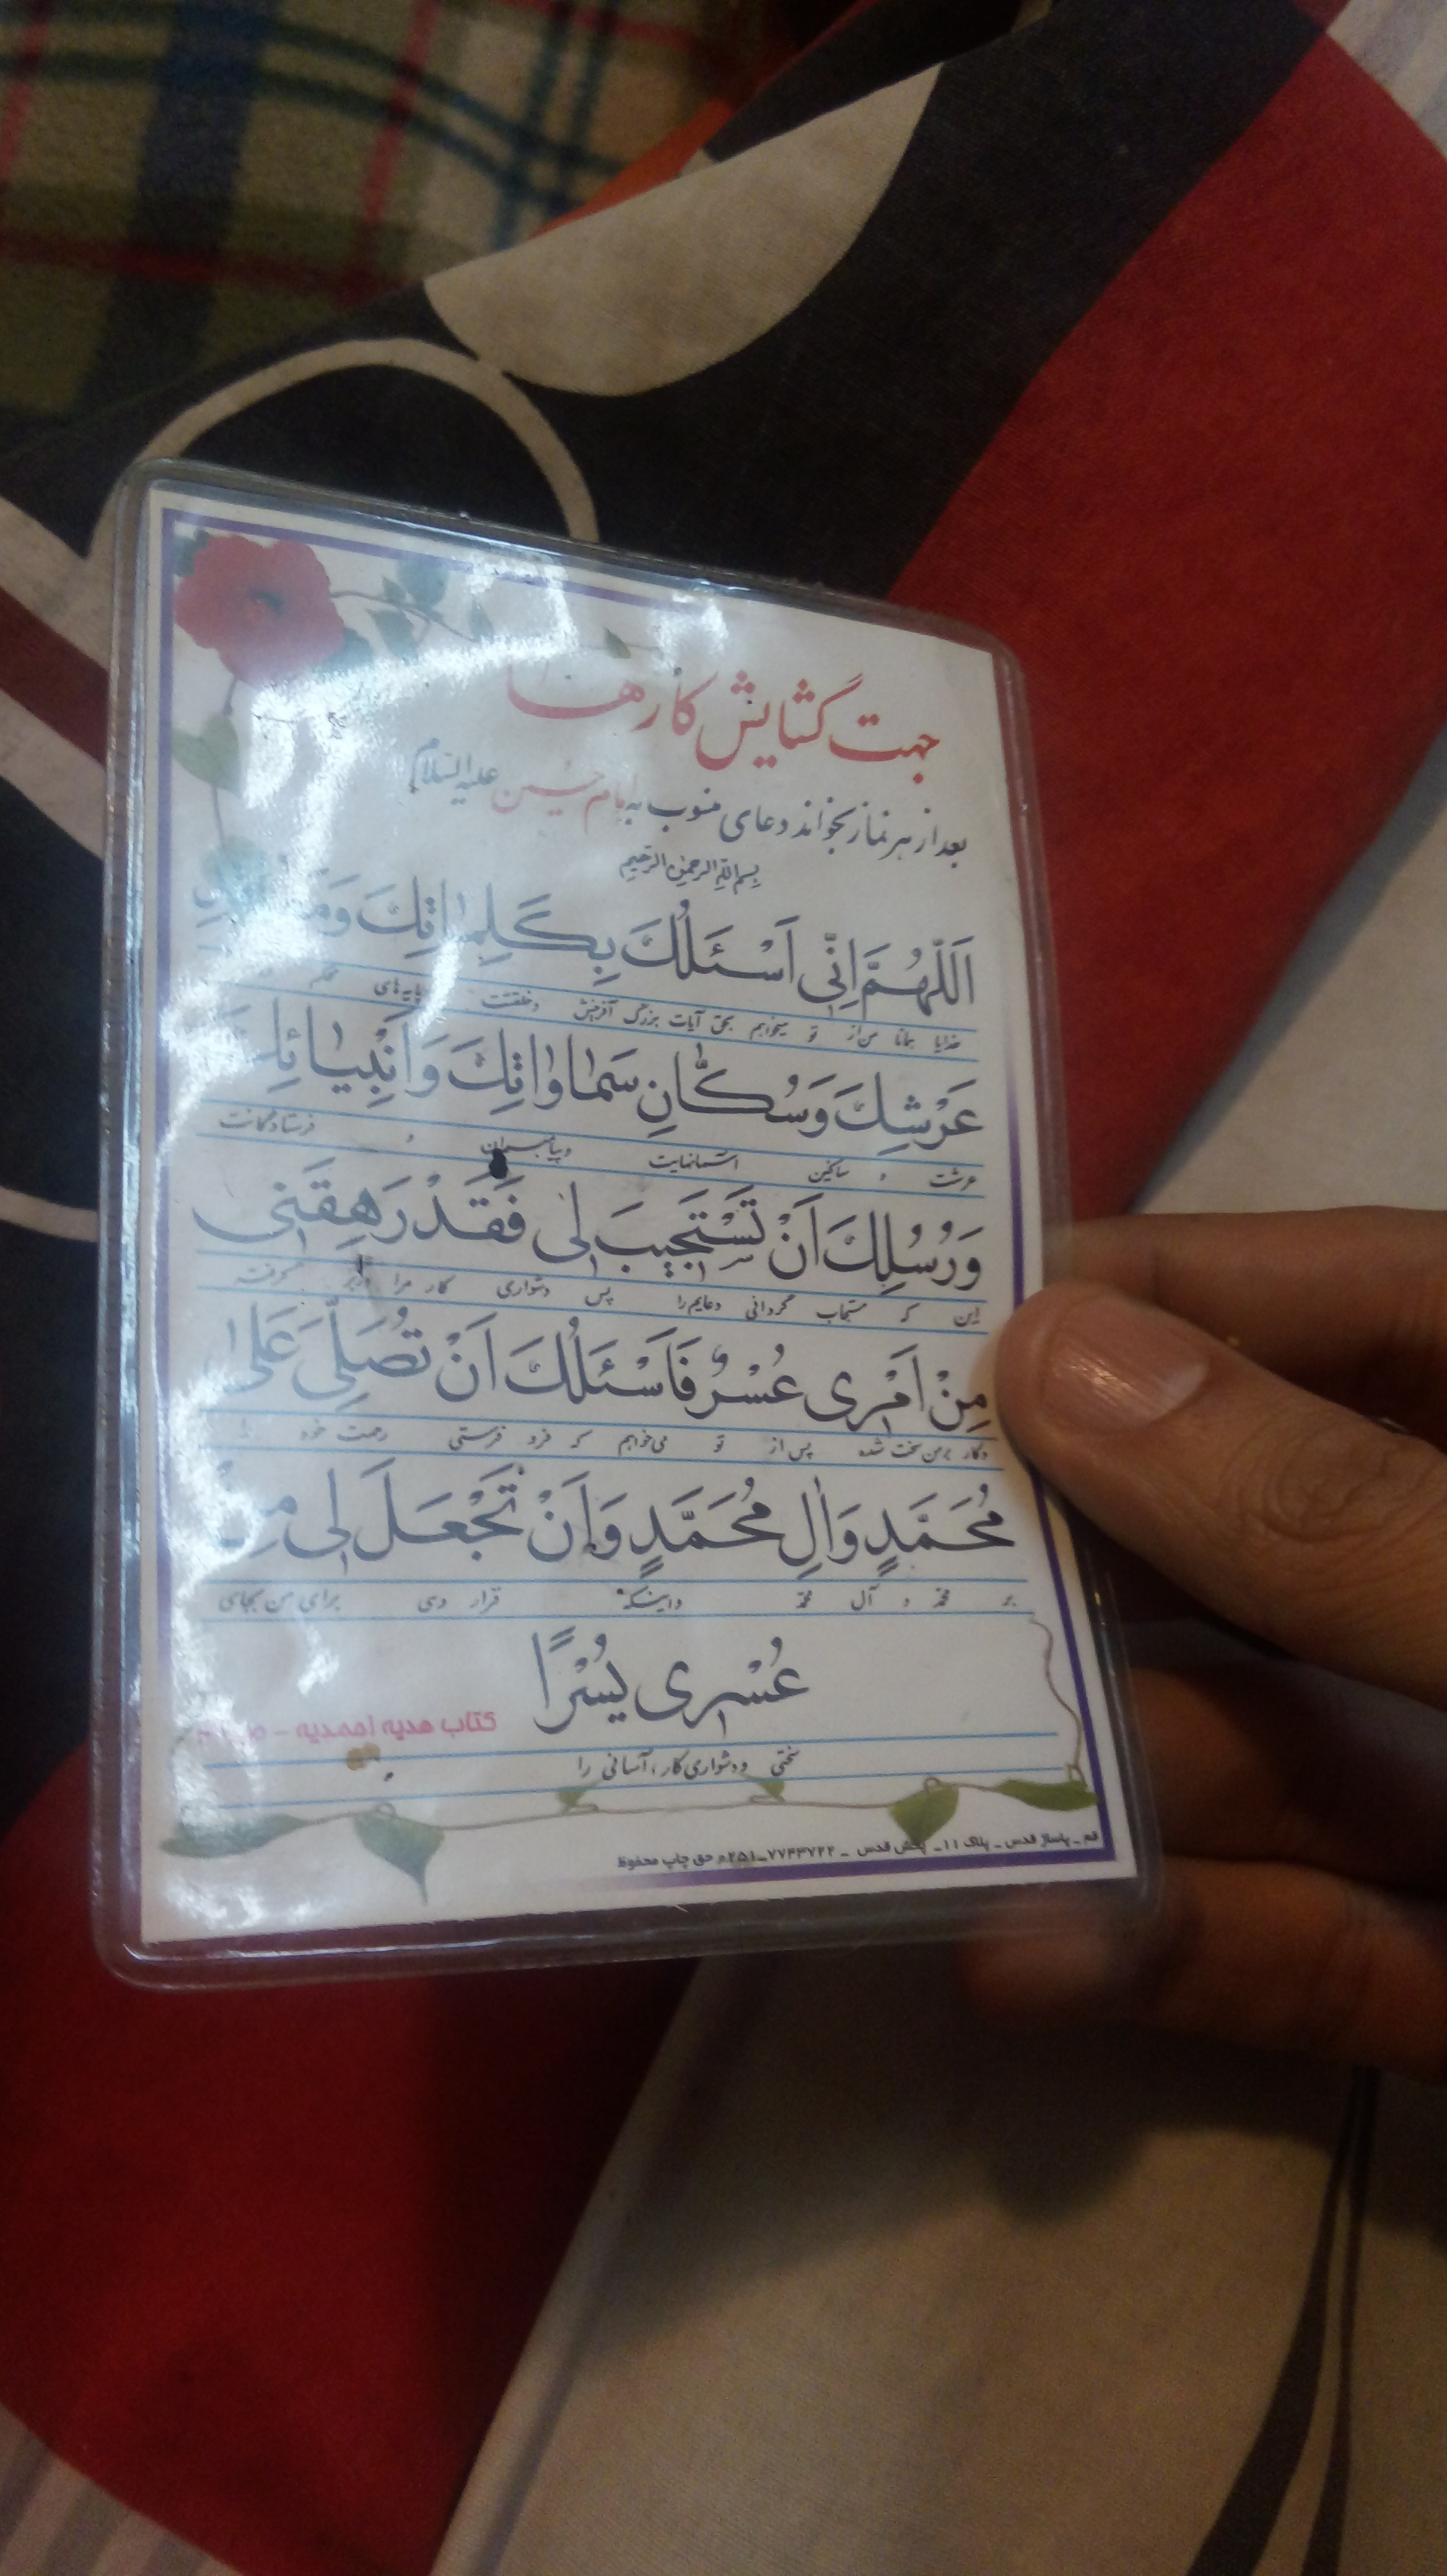 جهت گشایش کارها
بعد از هر نماز بخواند دعای منسوب به امام حسین علیه السلام
بسم الله الرحمن الرحیم
اَللّهُمَّ اِنّی اَسْئَلُكَ بِكَلِماتِكَ وَ
خدایا همانا من از تو میخواهم بحق آیات بزرگ آفرینش و خلقتت پایه‌های محکم
عَرْشِكَ وَسُكّانِ سَماواتِكَ وَاَنْبِیائِكَ
عرشت و ساکنین آسمانهایت و پیامبران و فرستادگانت
وَرُسُلِكَ اَنْ تَسْتَجیبَ لی فَقَدْ رَهِقَنی
این که مستجاب گردانی دعایم را پس دشواری کار مرا گرفته
مِنْ اَمْری عُسْرٌ فَاَسْئَلُكَ اَنْ تُصَلِّیَ عَلی
و کار بر من سخت شده پس از تو می‌خواهم که فرو فرستی رحمت خود را
مُحَمَّدٍ وَالِ مُحَمَّدٍ وَاَنْ تَجْعَلَ لی مِنْ
بر محمد و آل محمد و اینکه قرار دهی برای من بجای
عُسْری یُسْرًا
کتاب هدیه احمدیه -
سختی و دشواری کار، آسانی را
قم - پاساژ قدس - پلاک ۱۱ - پخش قدس - ۷۷۴۳۷۲۲-۰۲۵۱ حق چاپ محفوظ